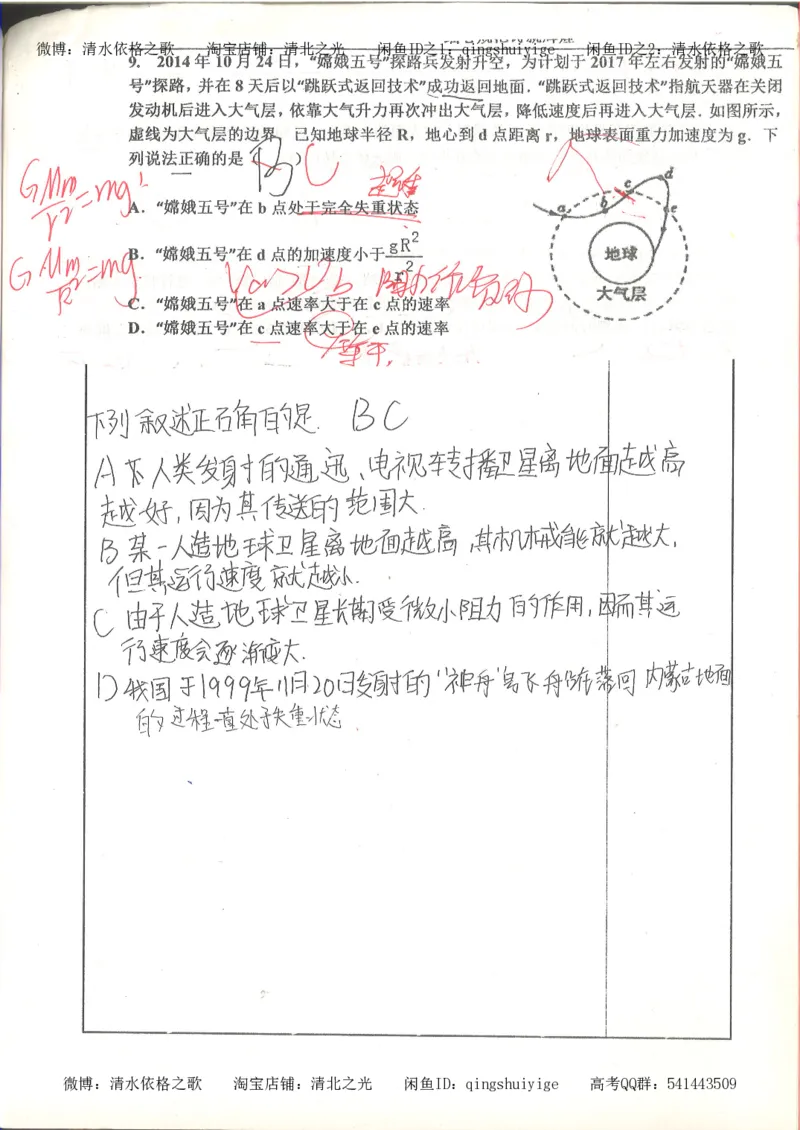 微博：清水依格之歌 淘宝店铺：清北之光 闲鱼ID之1：qingshuiyige 闲鱼ID之2：清水依格之歌
9. 2014年10月24日，“嫦娥五号”探路兵发射升空，为计划于2017年左右发射的“嫦娥五
号”探路，并在8天后以“跳跃式返回技术”成功返回地面．“跳跃式返回技术”指航天器在关闭
发动机后进入大气层，依靠大气升力再次冲出大气层，降低速度后再进入大气层．如图所示，
虚线为大气层的边界．已知地球半径R，地心到d点距离r，地球表面重力加速度为g．下
列说法正确的是（ ）
BC
GMm/r²=mg'
超重
A．“嫦娥五号”在b点处于完全失重状态
B．“嫦娥五号”在d点的加速度小于gR²/r²
GMm/R²=mg
Va>Vb
C．“嫦娥五号”在a点速率大于在c点的速率
D．“嫦娥五号”在c点速率大于在e点的速率
等于.
a
b
c
d
e
地球
大气层
下列叙述正确的是. BC
A 人类发射的通迅、电视转播卫星离地面越高
越好,因为其传送的范围大.
B 某一人造地球卫星离地面越高,其机械能就越大,
但其运行速度就越小.
C 由于人造地球卫星长期受微小阻力的作用,因而其运
行速度会逐渐变大.
D 我国于1999年11月20日发射的"神舟"号飞船在落回内蒙古地面
的过程一直处于失重状态.
微博：清水依格之歌 淘宝店铺：清北之光 闲鱼ID：qingshuiyige 高考QQ群：541443509